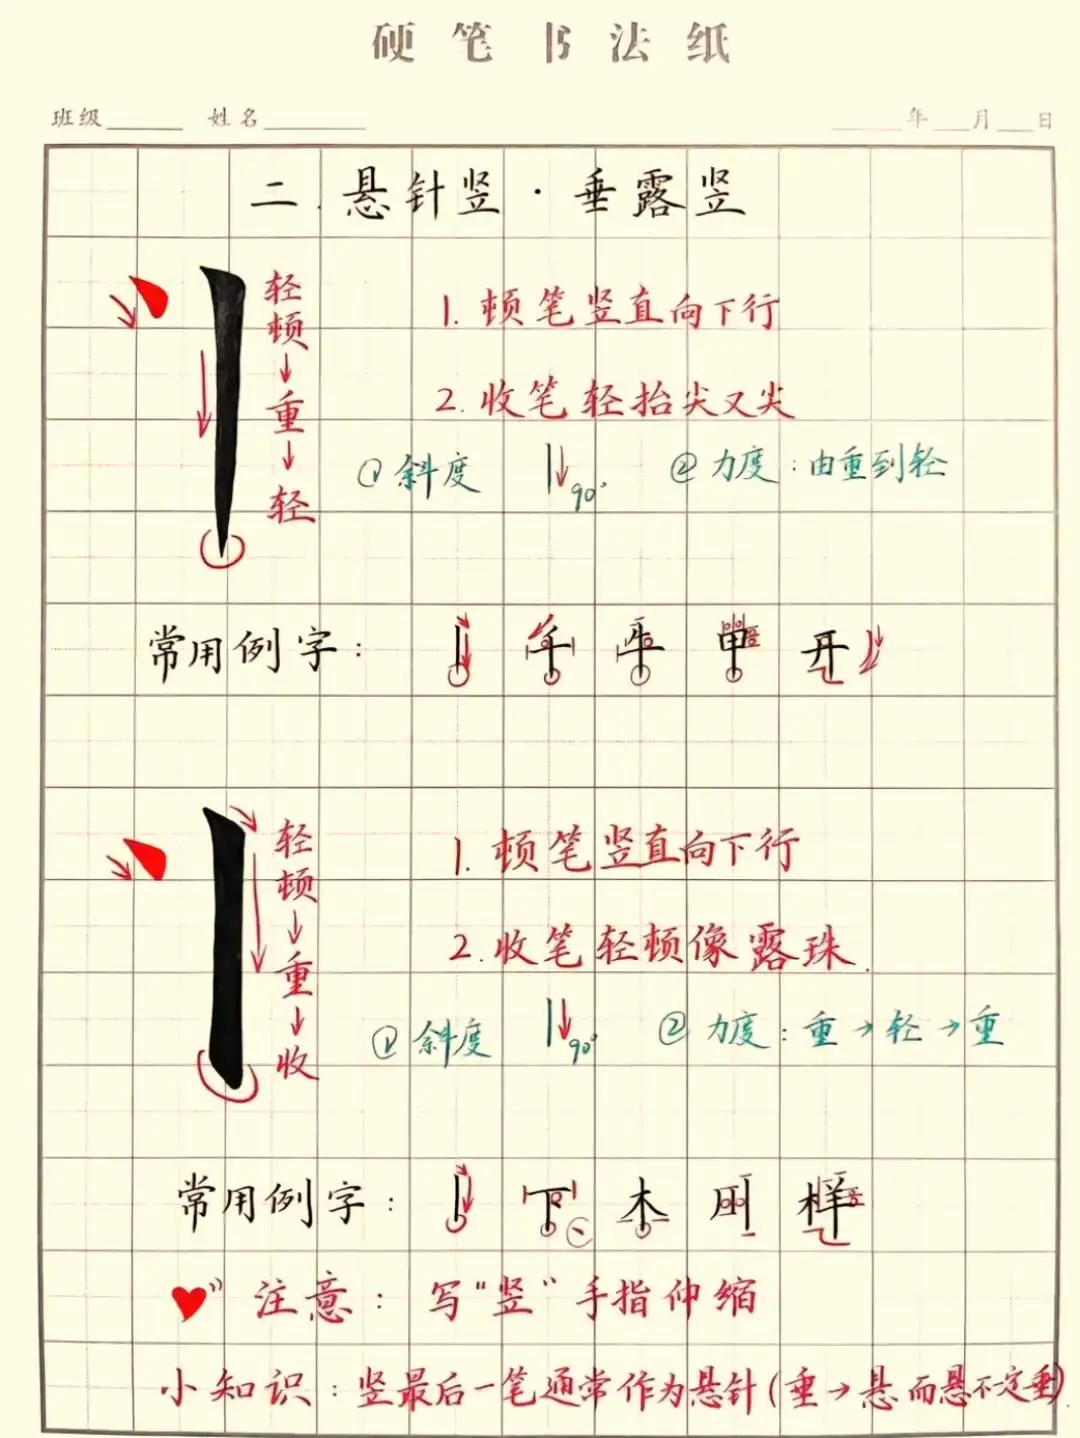 硬笔书法纸
班级 姓名 年 月 日
二.悬针竖·垂露竖
轻顿→重→轻
1.顿笔竖直向下行
2.收笔轻抬尖又尖
①斜度 90° ②力度:由重到轻
常用例字: 丨 午 平 甲 开
轻顿→重→收
1.顿笔竖直向下行
2.收笔轻顿像露珠.
①斜度 90° ②力度:重→轻→重
常用例字: 丨 下 木 样
注意:写“竖”手指伸缩
小知识:竖最后一笔通常作为悬针(垂→悬而悬不一定垂).